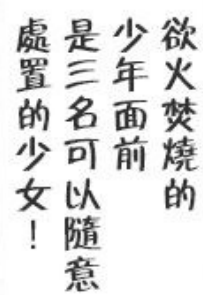 欲火焚燒的
少年面前
是三名可以隨意
處置的少女！